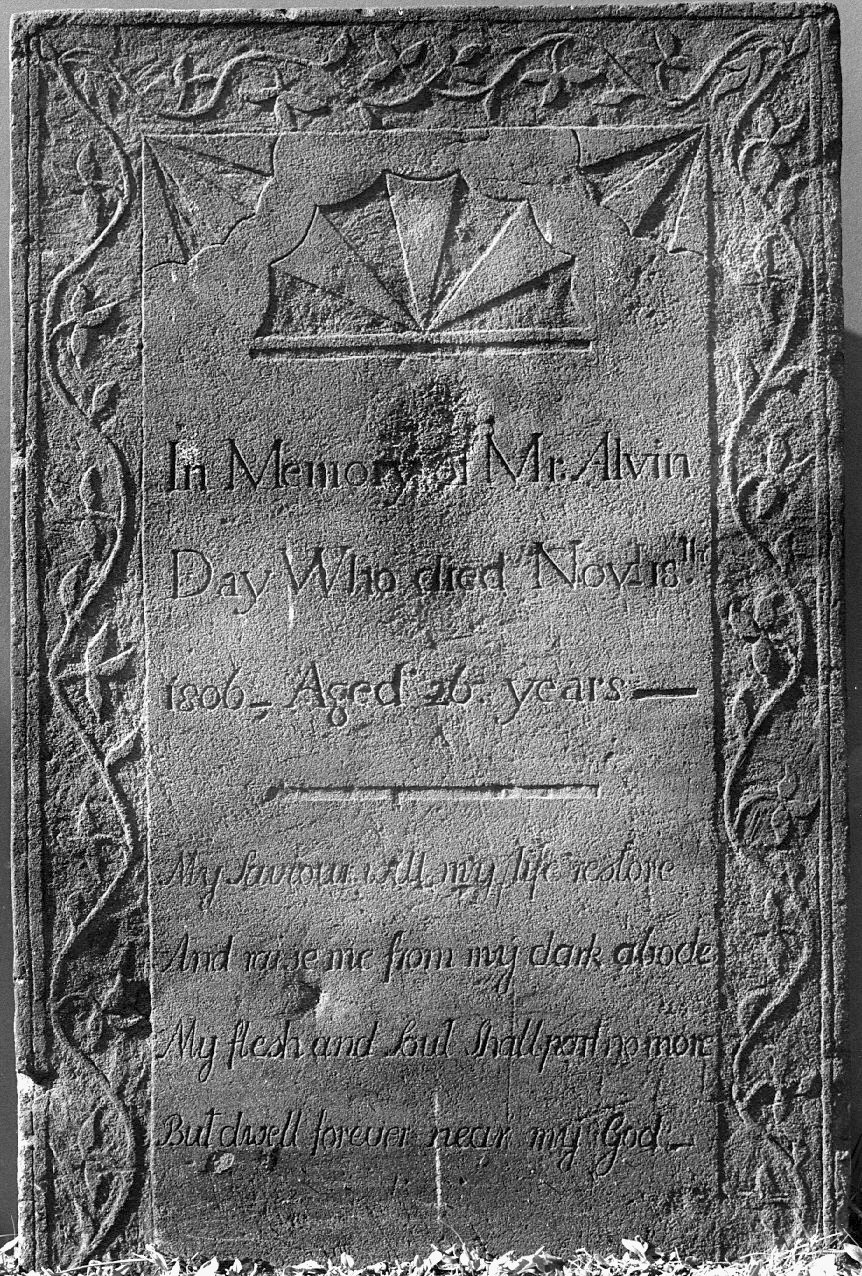 In Memory of Mr. Alvin
Day Who died Novr 18th
1806_ Aged 26 years —
My Saviour will my life restore
And raise me from my dark abode
My flesh and Soul Shall part no more
But dwell forever near my God_